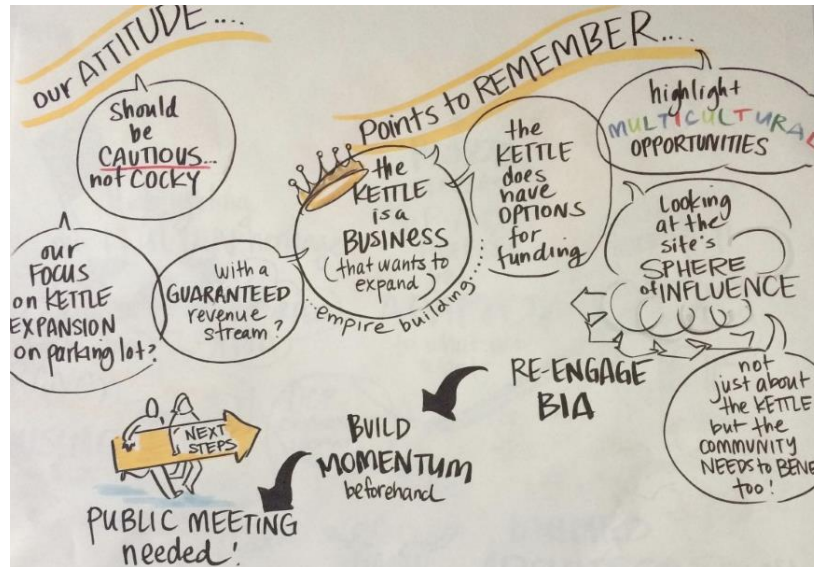 our ATTITUDE....
Should
be
CAUTIOUS...
not COCKY
our
FOCUS
on KETTLE
EXPANSION
on parking lot?
with a
GUARANTEED
revenue
stream?
Points to REMEMBER....
the
KETTLE
is a
BUSINESS
(that wants to
expand)
...empire building....
the
KETTLE
does
have
OPTIONS
for
funding
highlight
MULTICULTURAL
OPPORTUNITIES
Looking
at the
site's
SPHERE
of INFLUENCE
not
just about
the KETTLE
but the
COMMUNITY
NEEDS to BENE
too!
RE-ENGAGE
BIA
BUILD
MOMENTUM
beforehand
NEXT
STEPS
PUBLIC MEETING
needed!